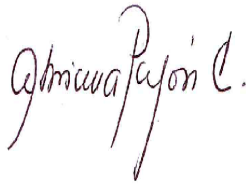 Adriana Pajón C.